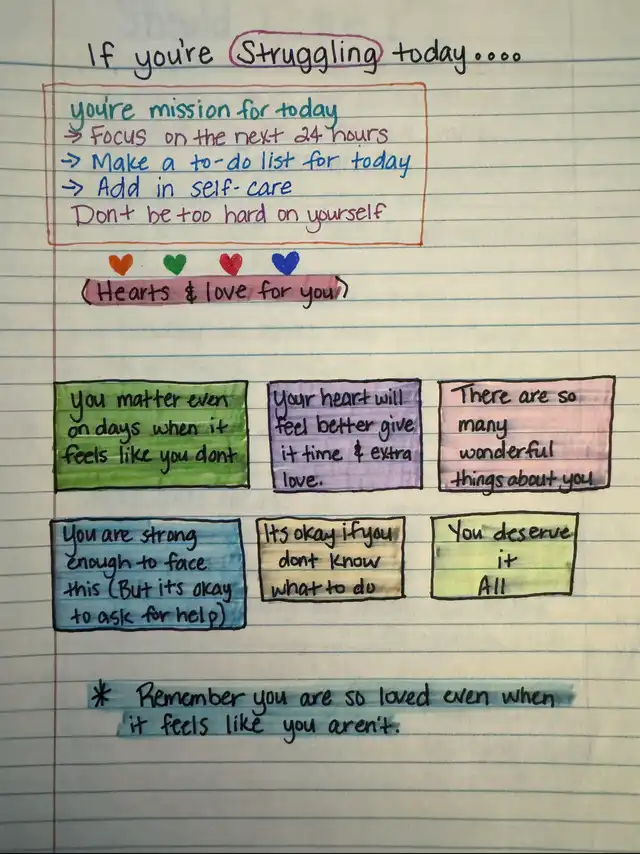 If you're Struggling today....
you're mission for today
→ Focus on the next 24 hours
→ Make a to-do list for today
→ Add in self-care
Dont be too hard on yourself
(Hearts & love for you)
You matter even
on days when it
feels like you dont
Your heart will
feel better give
it time & extra
love.
There are so
many
wonderful
things about you
You are strong
enough to face
this (But its okay
to ask for help)
Its okay if you
dont know
what to do
You deserve
it
All
* Remember you are so loved even when
it feels like you aren't.